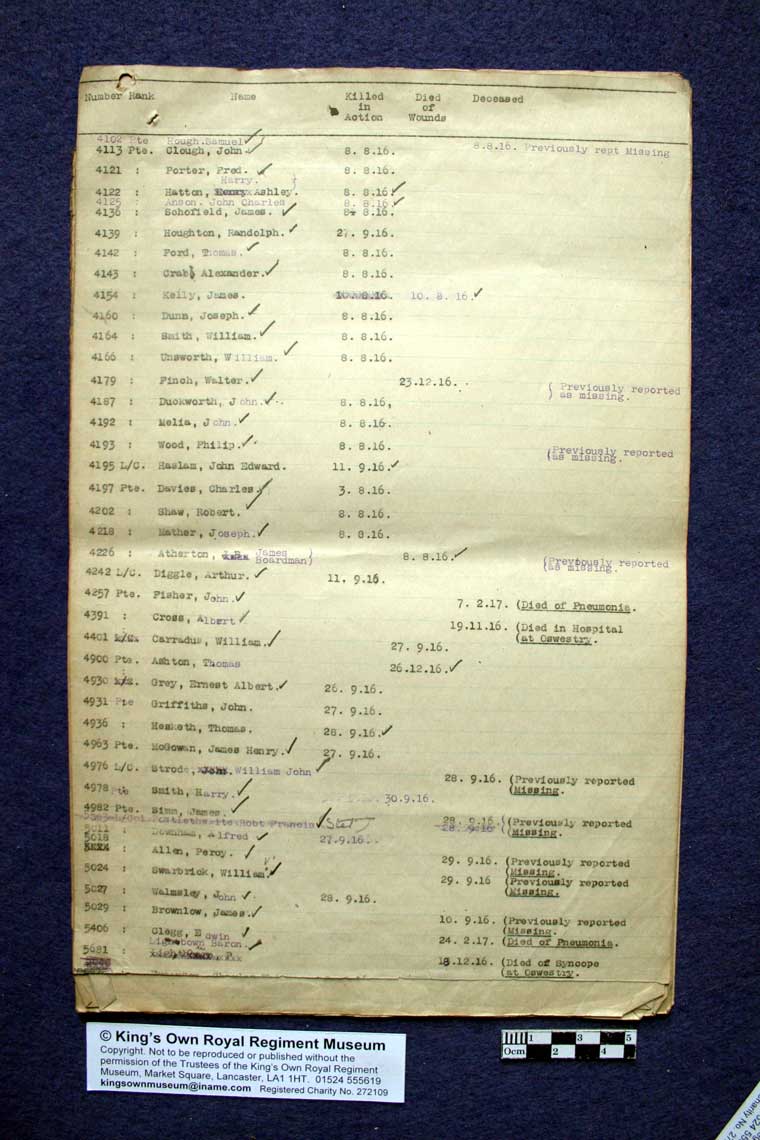 Number Rank Name Killed in Action Died of Wounds Deceased
4102 Pte Hough.Samuel 8.8.16. Previously rept Missing
4113 Pte. Clough, John 8. 8.16.
4121 : Porter, Fred. 8. 8.16.
Harry.
4122 : Hatton, Ashley. 8. 8.16.
4125 : Anson. John Charles 8. 8.16.
4136 : Schofield, James. 8. 8.16.
4139 : Houghton, Randolph. 27. 9.16.
4142 : Ford, Thomas. 8. 8.16.
4143 : Crab Alexander. 8. 8.16.
4154 : Kelly, James. 10. 8.16. 10. 8. 16.
4160 : Dunn, Joseph. 8. 8.16.
4164 : Smith, William. 8. 8.16.
4166 : Unsworth, William. 8. 8.16.
4179 : Finch, Walter. 23.12.16.
4187 : Duckworth, John. 8. 8.16, (Previously reported as missing.
4192 : Melia, John. 8. 8.16.
4193 : Wood, Philip. 8. 8.16.
4195 L/C. Haslam, John Edward. 11. 9.16. (Previously reported as missing.
4197 Pte. Davies, Charles. 3. 8.16.
4202 : Shaw, Robert. 8. 8.16.
4218 : Mather, Joseph. 8. 8.16.
4226 : Atherton, James Boardman) 8. 8.16. (Previously reported as missing.
4242 L/C. Diggle, Arthur. 11. 9.16.
4257 Pte. Fisher, John. 7. 2.17. (Died of Pneumonia.
4391 : Cross, Albert 19.11.16. (Died in Hospital
(at Oswestry.
4401 L/C. Carradus, William. 27. 9.16.
4900 Pte. Ashton, Thomas 26.12.16.
4930 Grey, Ernest Albert. 26. 9.16.
4931 Pte Griffiths, John. 27. 9.16.
4936 : Hesketh, Thomas. 28. 9.16.
4963 Pte. McGowan, James Henry. 27. 9.16.
4976 L/C. Strode, William John 28. 9.16. (Previously reported
(Missing.
4978 Pte Smith, Harry. 30.9.16.
4982 Pte. Simm, James. 28. 9.16. (Previously reported
Robt Francis 28. 9.16 (Missing.
5011 : Downham, Alfred 27.9.16.
5018 Allen, Percy. 29. 9.16. (Previously reported
(Missing.
5024 : Swarbrick, William. 29. 9.16 (Previously reported
(Missing.
5027 : Walmsley, John 28. 9.16.
5029 : Brownlow, James. 10. 9.16. (Previously reported
(Missing.
5406 : Clegg, Edwin 24. 2.17. (Died of Pneumonia.
5681 : Lightbown Baron. 18.12.16. (Died of Syncope
(at Oswestry.
© King's Own Royal Regiment Museum
Copyright. Not to be reproduced or published without the
permission of the Trustees of the King's Own Royal Regiment
Museum, Market Square, Lancaster, LA1 1HT. 01524 555619
kingsownmuseum@iname.com Registered Charity No. 272109
1 3 5
0cm 2 4